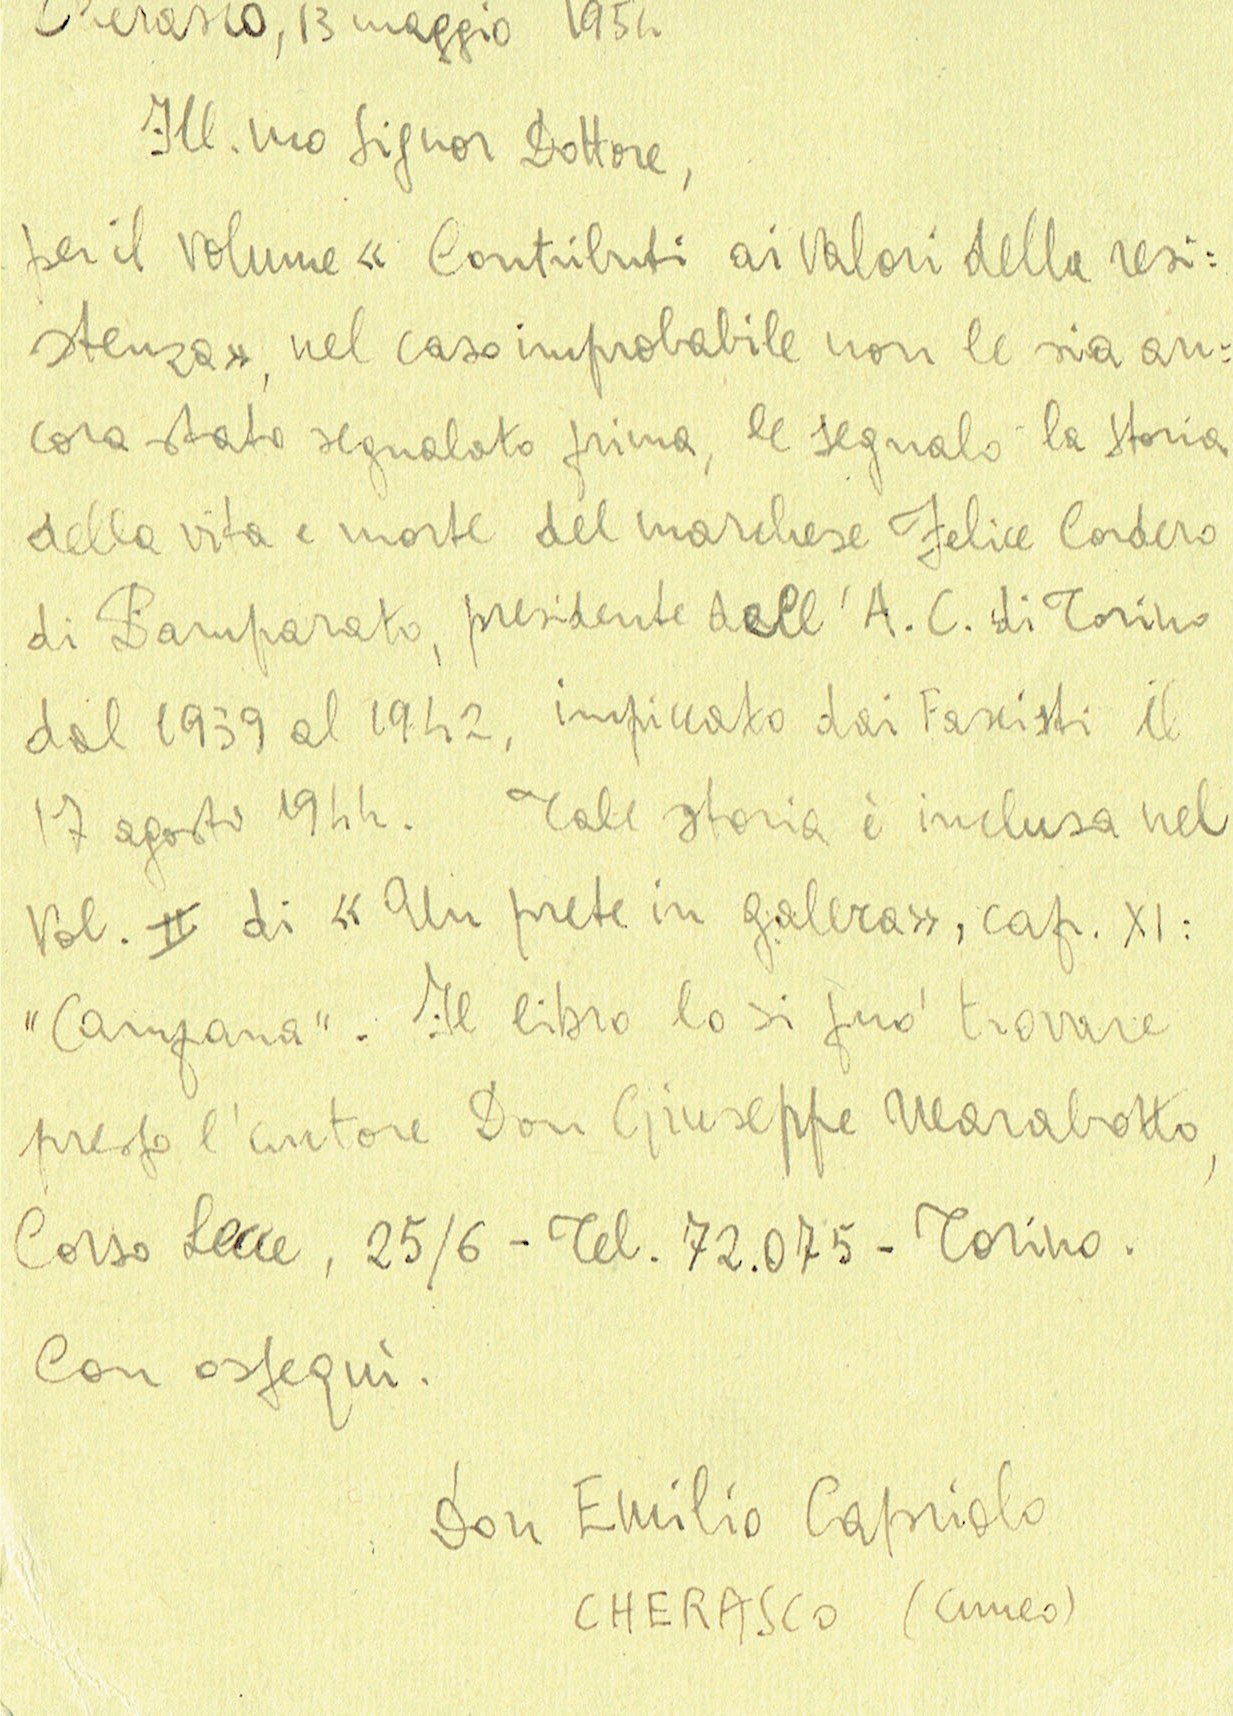 Cherasco, 13 maggio 1954
Ill.mo Signor Dottore,
per il volume « Contributi ai valori della resi=
stenza», nel caso improbabile non le sia an=
cora stato segnalato prima, le segnalo la storia
della vita e morte del marchese Felice Cordero
di Pamparato, presidente dell'A.C. di Torino
dal 1939 al 1942, impiccato dai Fascisti il
17 agosto 1944. Tale storia è inclusa nel
Vol. II di « Un prete in galera», cap. XI:
"Campana". Il libro lo si può trovare
presso l'autore Don Giuseppe Marabotto,
Corso Lecce, 25/6 - Tel. 72.075 - Torino.
Con ossequi.
Don Emilio Capriolo
CHERASCO (Cuneo)